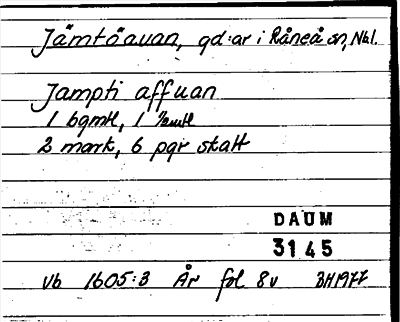 Jämtöauan, gd:ar i Råneå sn, Nbl.
Jampti affuan
1 bgmtl, 1 
2 mark, 6 pgr skatt
DAUM
3145
Vb 1605:3 År fol 8v BH1977